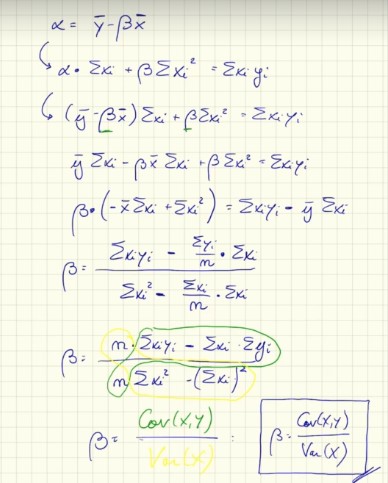 α = ȳ - βx̄
α · Σxi + βΣxi² = Σxiyi
(ȳ - βx̄)Σxi + βΣxi² = Σxiyi
ȳ Σxi - βx̄ Σxi + βΣxi² = Σxiyi
β · (-x̄Σxi + Σxi²) = Σxiyi - ȳ Σxi
β = (Σxiyi - Σyi/n · Σxi) / (Σxi² - Σxi/n · Σxi)
β = (n · Σxiyi - Σxi · Σyi) / (n Σxi² - (Σxi)²)
β = Cov(X,Y) / Var(X) : β = Cov(X,Y) / Var(X)